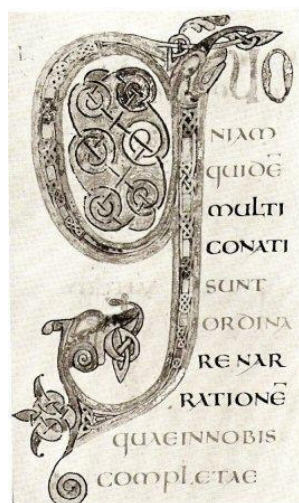 QUO
NIAM
QUIDE̅
MULTI
CONATI
SUNT
ORDINA
RE NAR
RATIONE̅
QUAE IN NOBIS
COMPLETAE